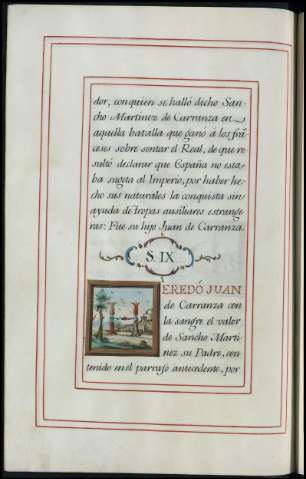 dor, con quien se halló dicho San-
cho Martinez de Carranza en
aquella batalla que ganó á los frã
ceses sobre sentar el Real, de que re
sultó declarar que España no esta-
ba sugeta al Imperio, por haber he-
cho sus naturales la conquista sin
ayuda de tropas ausiliares estrange
ras: Fue su hijo Juan de Carranza.
S. IX
EREDÓ JUAN
de Carranza con
la sangre el valor
de Sancho Marti
nez su Padre, con-
tenido en el parrafo antecedente, por